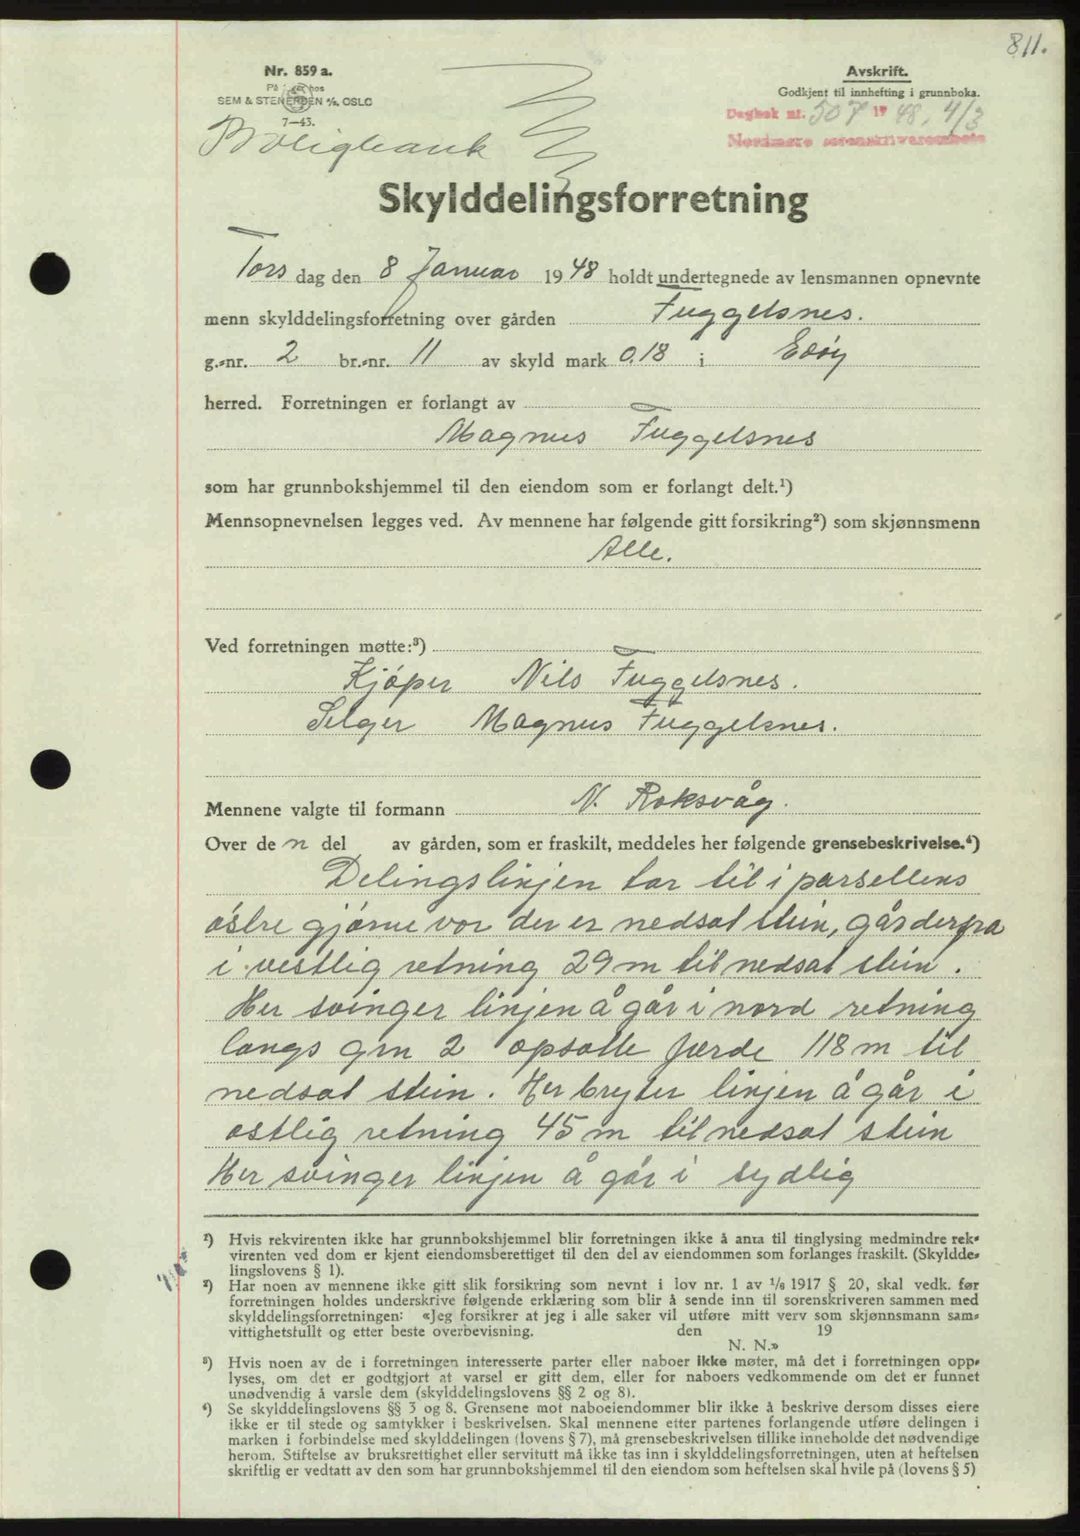 811.
Nr. 859 a.
På lager hos
SEM & STENERSEN A/S, OSLO
7—43.
Avskrift.
Godkjent til innhefting i grunnboka.
Dagbok nr. 507 19 48, 4/3
Nordmøre sorenskriverembete
Boligbank
Skylddelingsforretning
Tors dag den 8 Januar 19 48 holdt undertegnede av lensmannen opnevnte
menn skylddelingsforretning over gården Fuggelsnes.
g.-nr. 2 br.-nr. 11 av skyld mark 0,18 i Edøy
herred. Forretningen er forlangt av
Magnus Fuggelsnes
som har grunnbokshjemmel til den eiendom som er forlangt delt.¹)
Mennsopnevnelsen legges ved. Av mennene har følgende gitt forsikring²) som skjønnsmenn
Alle.
Ved forretningen møtte:³)
Kjøper Nils Fuggelsnes.
Selger Magnus Fuggelsnes.
Mennene valgte til formann N. Roksvåg.
Over de n del av gården, som er fraskilt, meddeles her følgende grensebeskrivelse.⁴)
Delingslinjen tar til i parsellens
østre gjørne vor der er nedsat stein, går derfra
i vestlig retning 29 m til nedsat stein.
Her svinger linjen å går i nord retning
langs grn 2 opsatte færde 118 m til
nedsat stein. Her bryter linjen å går i
ostlig retning 45 m til nedsat stein
Her svinger linjen å går i sydlig
²) Hvis rekvirenten ikke har grunnbokshjemmel blir forretningen ikke å anta til tinglysing medmindre rek-
virenten ved dom er kjent eiendomsberettiget til den del av eiendommen som forlanges fraskilt. (Skyldde-
lingslovens § 1).
²) Har noen av mennene ikke gitt slik forsikring som nevnt i lov nr. 1 av ¹/₆ 1917 § 20, skal vedk. før
forretningen holdes underskrive følgende erklæring som blir å sende inn til sorenskriveren sammen med
skylddelingsforretningen: «Jeg forsikrer at jeg i alle saker vil utføre mitt verv som skjønnsmann sam-
vittighetsfullt og etter beste overbevisning. den 19
N. N.»
³) Hvis noen av de i forretningen interesserte parter eller naboer ikke møter, må det i forretningen opp-
lyses, om det er godtgjort at varsel er gitt dem, eller for naboers vedkommende om det er funnet
unødvendig å varsle dem (skylddelingslovens §§ 2 og 8).
⁴) Se skylddelingslovens §§ 3 og 8. Grensene mot naboeiendommer blir ikke å beskrive dersom disses eiere
ikke er til stede og samtykker i beskrivelsen. Skal mennene etter partenes forlangende utføre delingen i
marken i forbindelse med skylddelingen (lovens § 7), må grensebeskrivelsen tillike inneholde det nødvendige
herom. Stiftelse av bruksrettighet eller servitutt må ikke tas inn i skylddelingsforretningen, uten at heftelsen
skriftlig er vedtatt av den som har grunnbokshjemmel til den eiendom som heftelsen skal hvile på (lovens § 5)